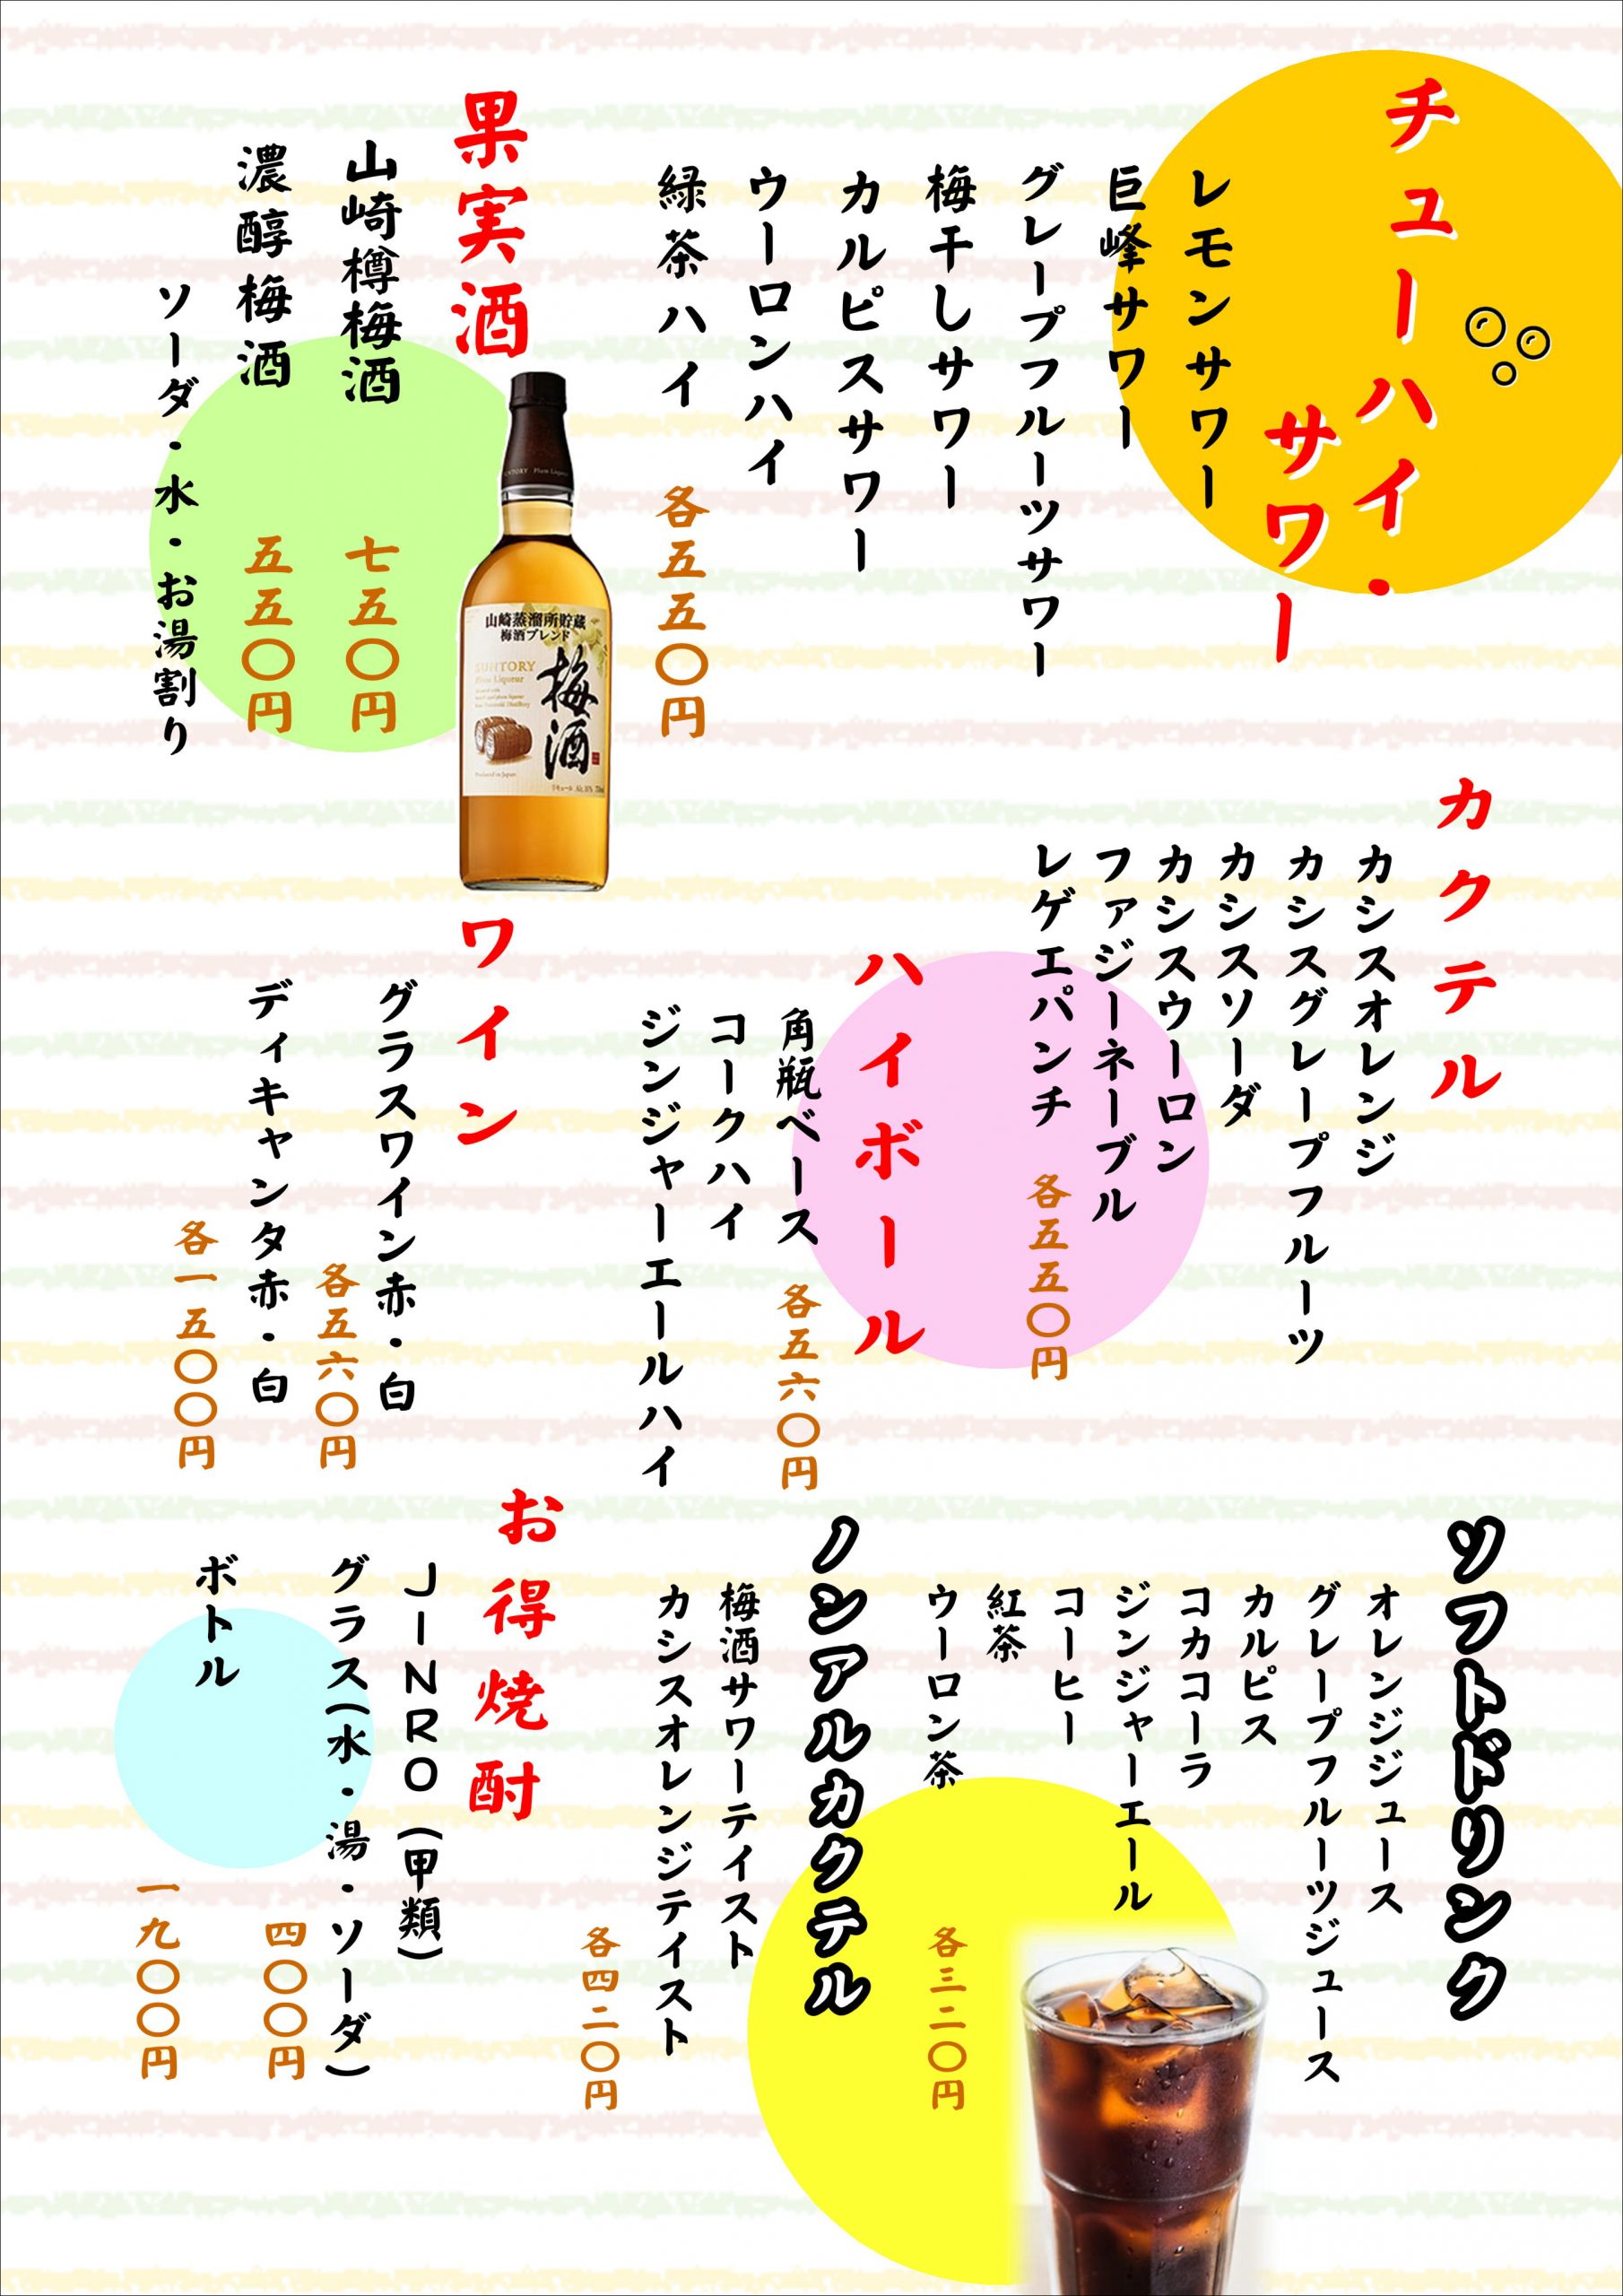 チューハイ・
サワー
レモンサワー
巨峰サワー
グレープフルーツサワー
梅干しサワー
カルピスサワー
ウーロンハイ
緑茶ハイ
各五五〇円
果実酒
山崎樽梅酒
七五〇円
濃醇梅酒
五五〇円
ソーダ・水・お湯割り
山崎蒸溜所貯蔵
梅酒ブレンド
SUNTORY
Plum Liqueur
梅酒
Produced in Japan
カクテル
カシスオレンジ
カシスグレープフルーツ
カシスソーダ
カシスウーロン
ファジーネーブル
レゲエパンチ
各五五〇円
ハイボール
角瓶ベース
各五六〇円
コークハイ
ジンジャーエールハイ
ワイン
グラスワイン赤・白
各五六〇円
ディキャンタ赤・白
各一五〇〇円
ソフトドリンク
オレンジジュース
グレープフルーツジュース
カルピス
コカコーラ
ジンジャーエール
コーヒー
紅茶
ウーロン茶
各三二〇円
ノンアルカクテル
梅酒サワーテイスト
カシスオレンジテイスト
各四二〇円
お得焼酎
JINRO(甲類)
グラス(水・湯・ソーダ)
四〇〇円
ボトル
一九〇〇円